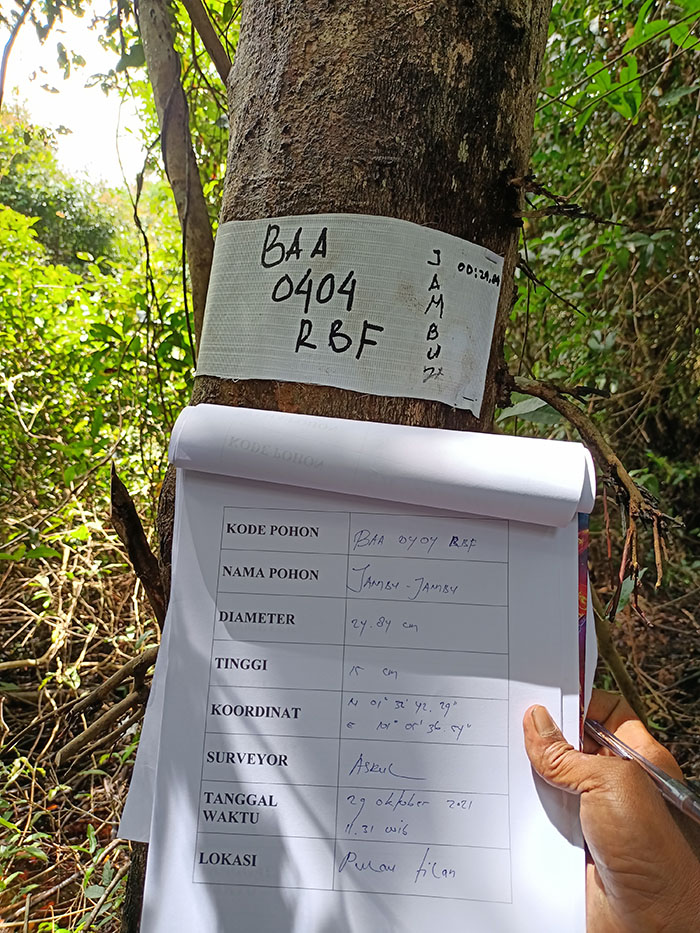 BAA
0404
RBF
JAMBU
KODE POHON
KODE POHON BAA 0404 RBF
NAMA POHON JAMBU-JAMBU
DIAMETER 24.84 cm
TINGGI 15 cm
KOORDINAT N 01° 32' 42.29"
SURVEYOR ASRUL
TANGGAL 29 oktober 2021
WAKTU 11.31 wib
LOKASI Pulau